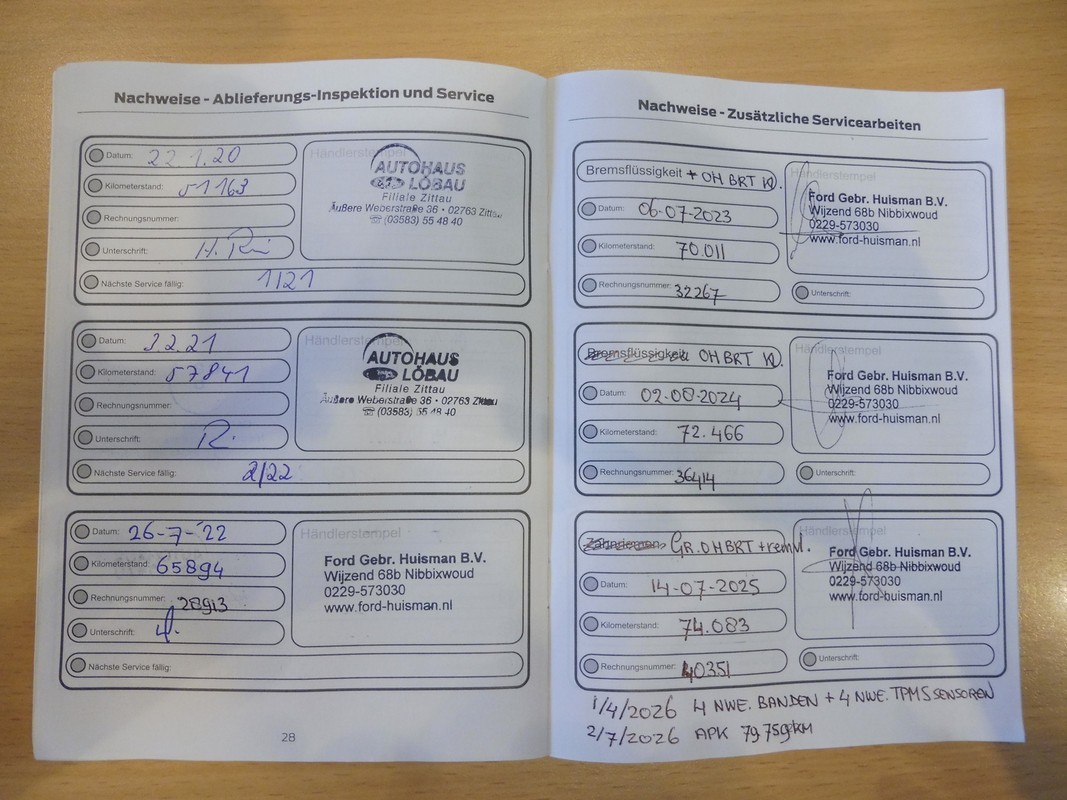 Nachweise - Ablieferungs-Inspektion und Service
Datum: 22.1.20
Kilometerstand: 51163
Rechnungsnummer:
Unterschrift:
Nächste Service fällig: 1/21
Händlerstempel
AUTOHAUS
LÖBAU
Filiale Zittau
Äußere Weberstraße 36 • 02763 Zittau
☏ (03583) 55 48 40
Datum: 3.2.21
Kilometerstand: 57841
Rechnungsnummer:
Unterschrift: R.
Nächste Service fällig: 2/22
Händlerstempel
AUTOHAUS
LÖBAU
Filiale Zittau
Äußere Weberstraße 36 • 02763 Zittau
☏ (03583) 55 48 40
Datum: 26-7-'22
Kilometerstand: 65894
Rechnungsnummer: 28913
Unterschrift:
Nächste Service fällig:
Händlerstempel
Ford Gebr. Huisman B.V.
Wijzend 68b Nibbixwoud
0229-573030
www.ford-huisman.nl
28
Nachweise - Zusätzliche Servicearbeiten
Bremsflüssigkeit + OH BRT
Datum: 06-07-2023
Kilometerstand: 70.011
Rechnungsnummer: 32267
Händlerstempel
Ford Gebr. Huisman B.V.
Wijzend 68b Nibbixwoud
0229-573030
www.ford-huisman.nl
Unterschrift:
Bremsflüssigkeit OH BRT
Datum: 02-08-2024
Kilometerstand: 72.466
Rechnungsnummer: 36414
Händlerstempel
Ford Gebr. Huisman B.V.
Wijzend 68b Nibbixwoud
0229-573030
www.ford-huisman.nl
Unterschrift:
Zahnriemen GR.OHBRT + remvl.
Datum: 14-07-2025
Kilometerstand: 74.083
Rechnungsnummer: 40351
Händlerstempel
Ford Gebr. Huisman B.V.
Wijzend 68b Nibbixwoud
0229-573030
www.ford-huisman.nl
Unterschrift:
1/4/2026 4 NWE. BANDEN + 4 NWE. TPMS SENSOREN
2/7/2026 APK 79.759km